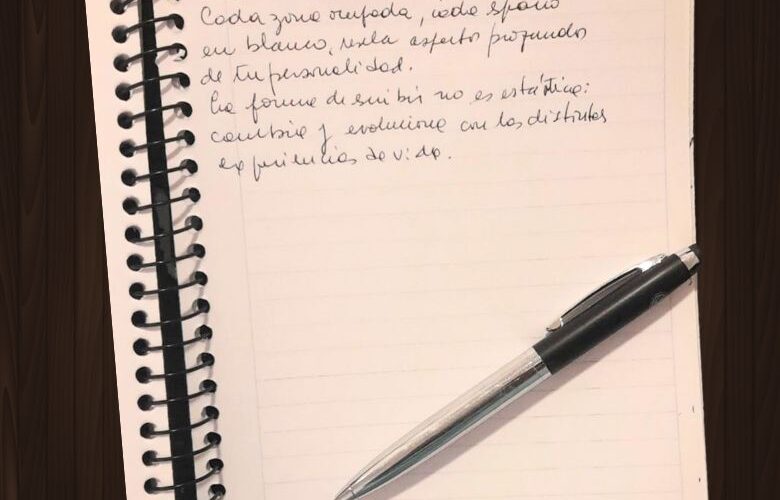 Cada zona ocupada, cada espacio
en blanco, revela aspectos profundos
de tu personalidad.
La forma de escribir no es estática:
cambia y evoluciona con las distintas
experiencias de vida.